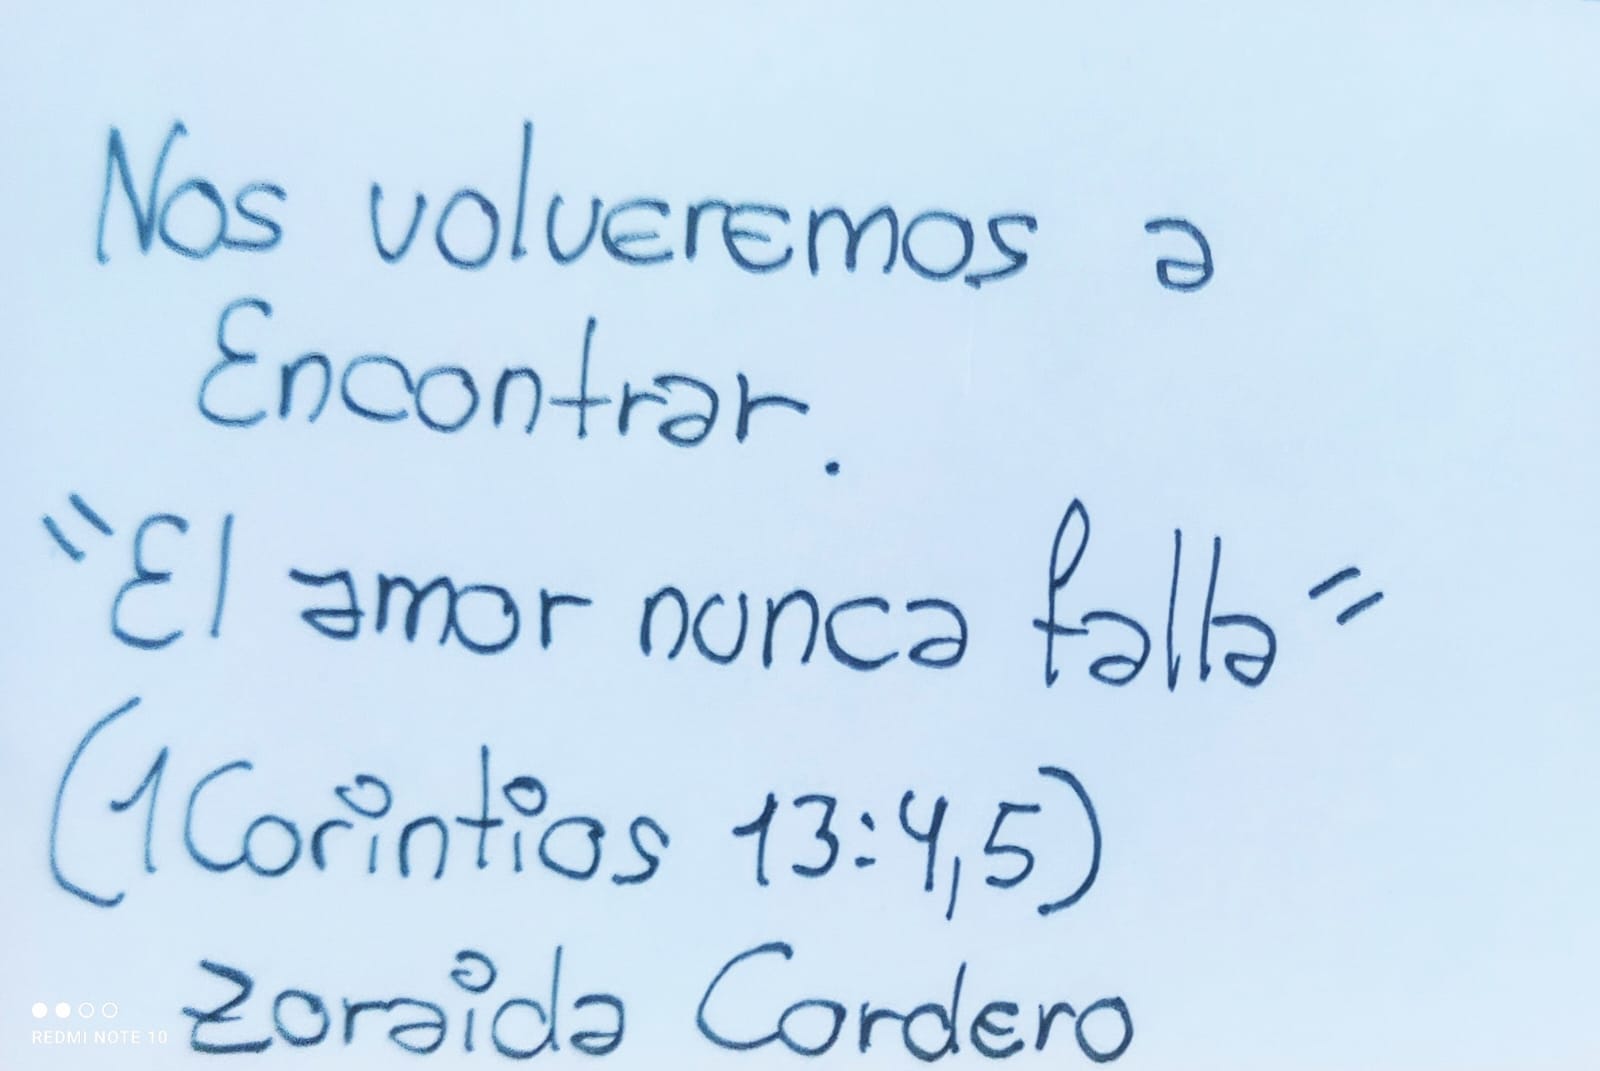 Nos volveremos a
Encontrar.
"El amor nunca falla"
(1 Corintios 13:4,5)
Zoraida Cordero
REDMI NOTE 10